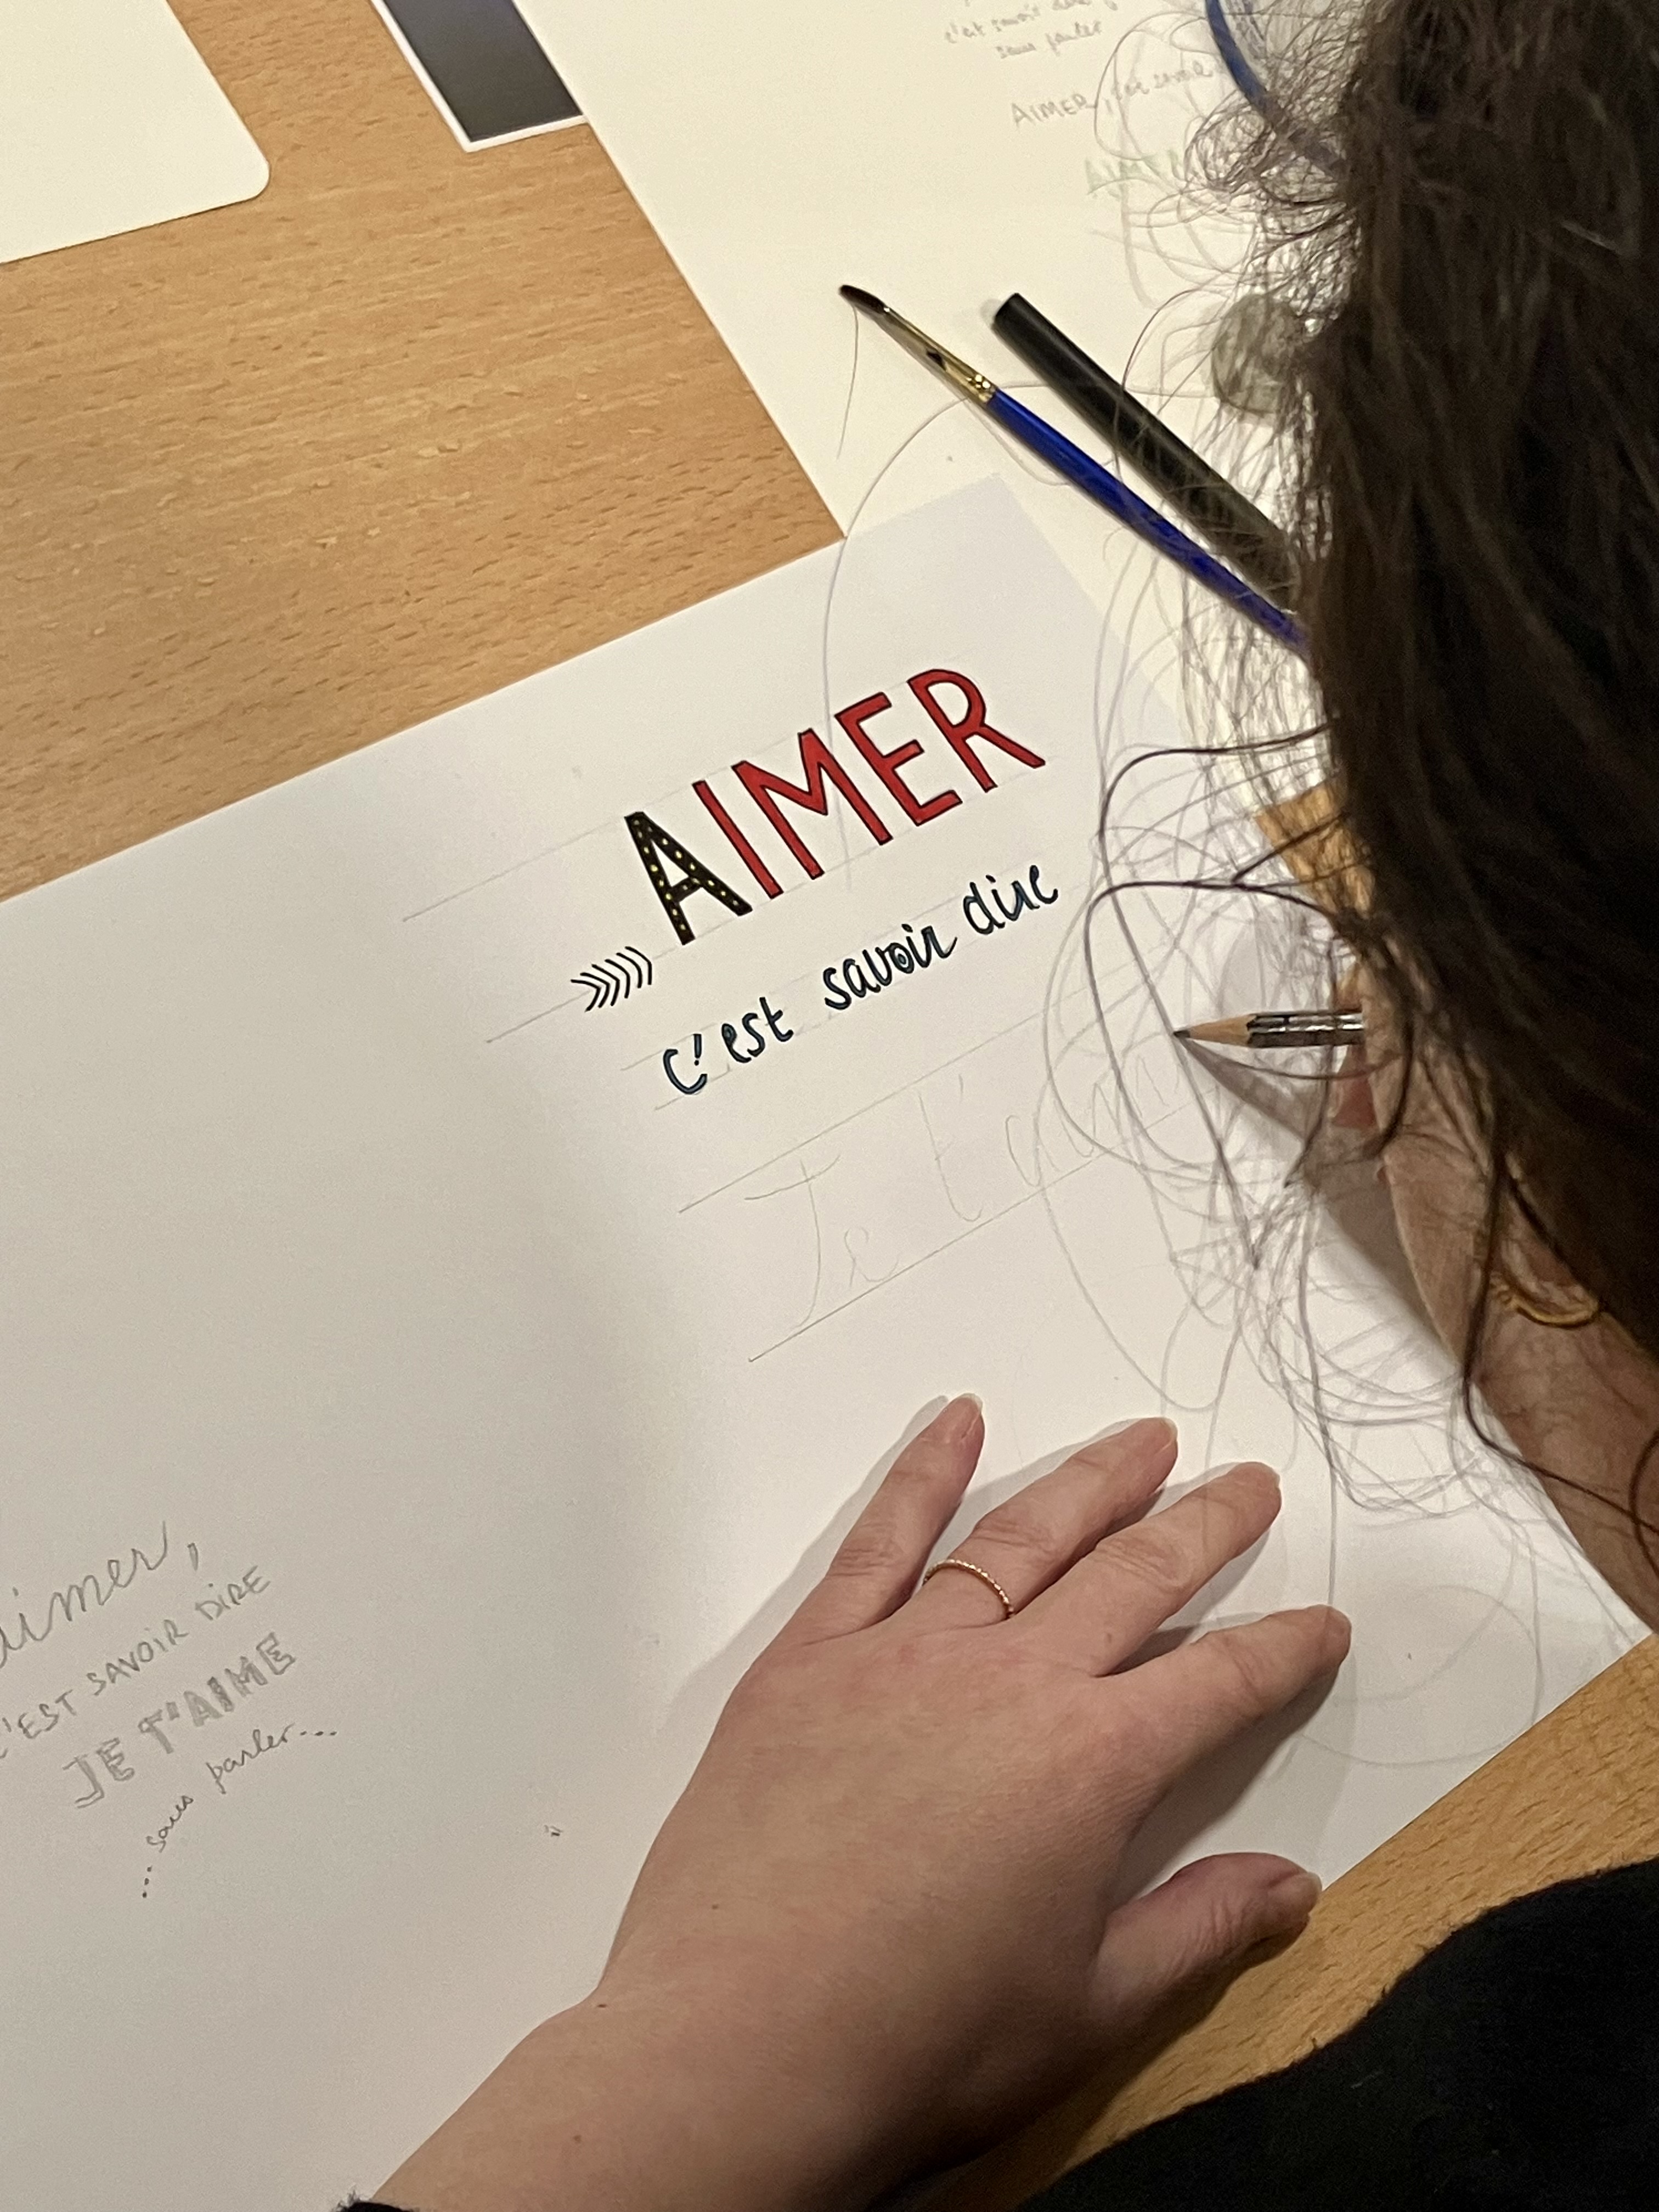 c'est savoir dire
sans parler
AIMER, c'est savoir
AIMER
AIMER
c'est savoir dire
Je t'aim
aimer,
C'EST SAVOIR DIRE
JE T'AIME
... sans parler...